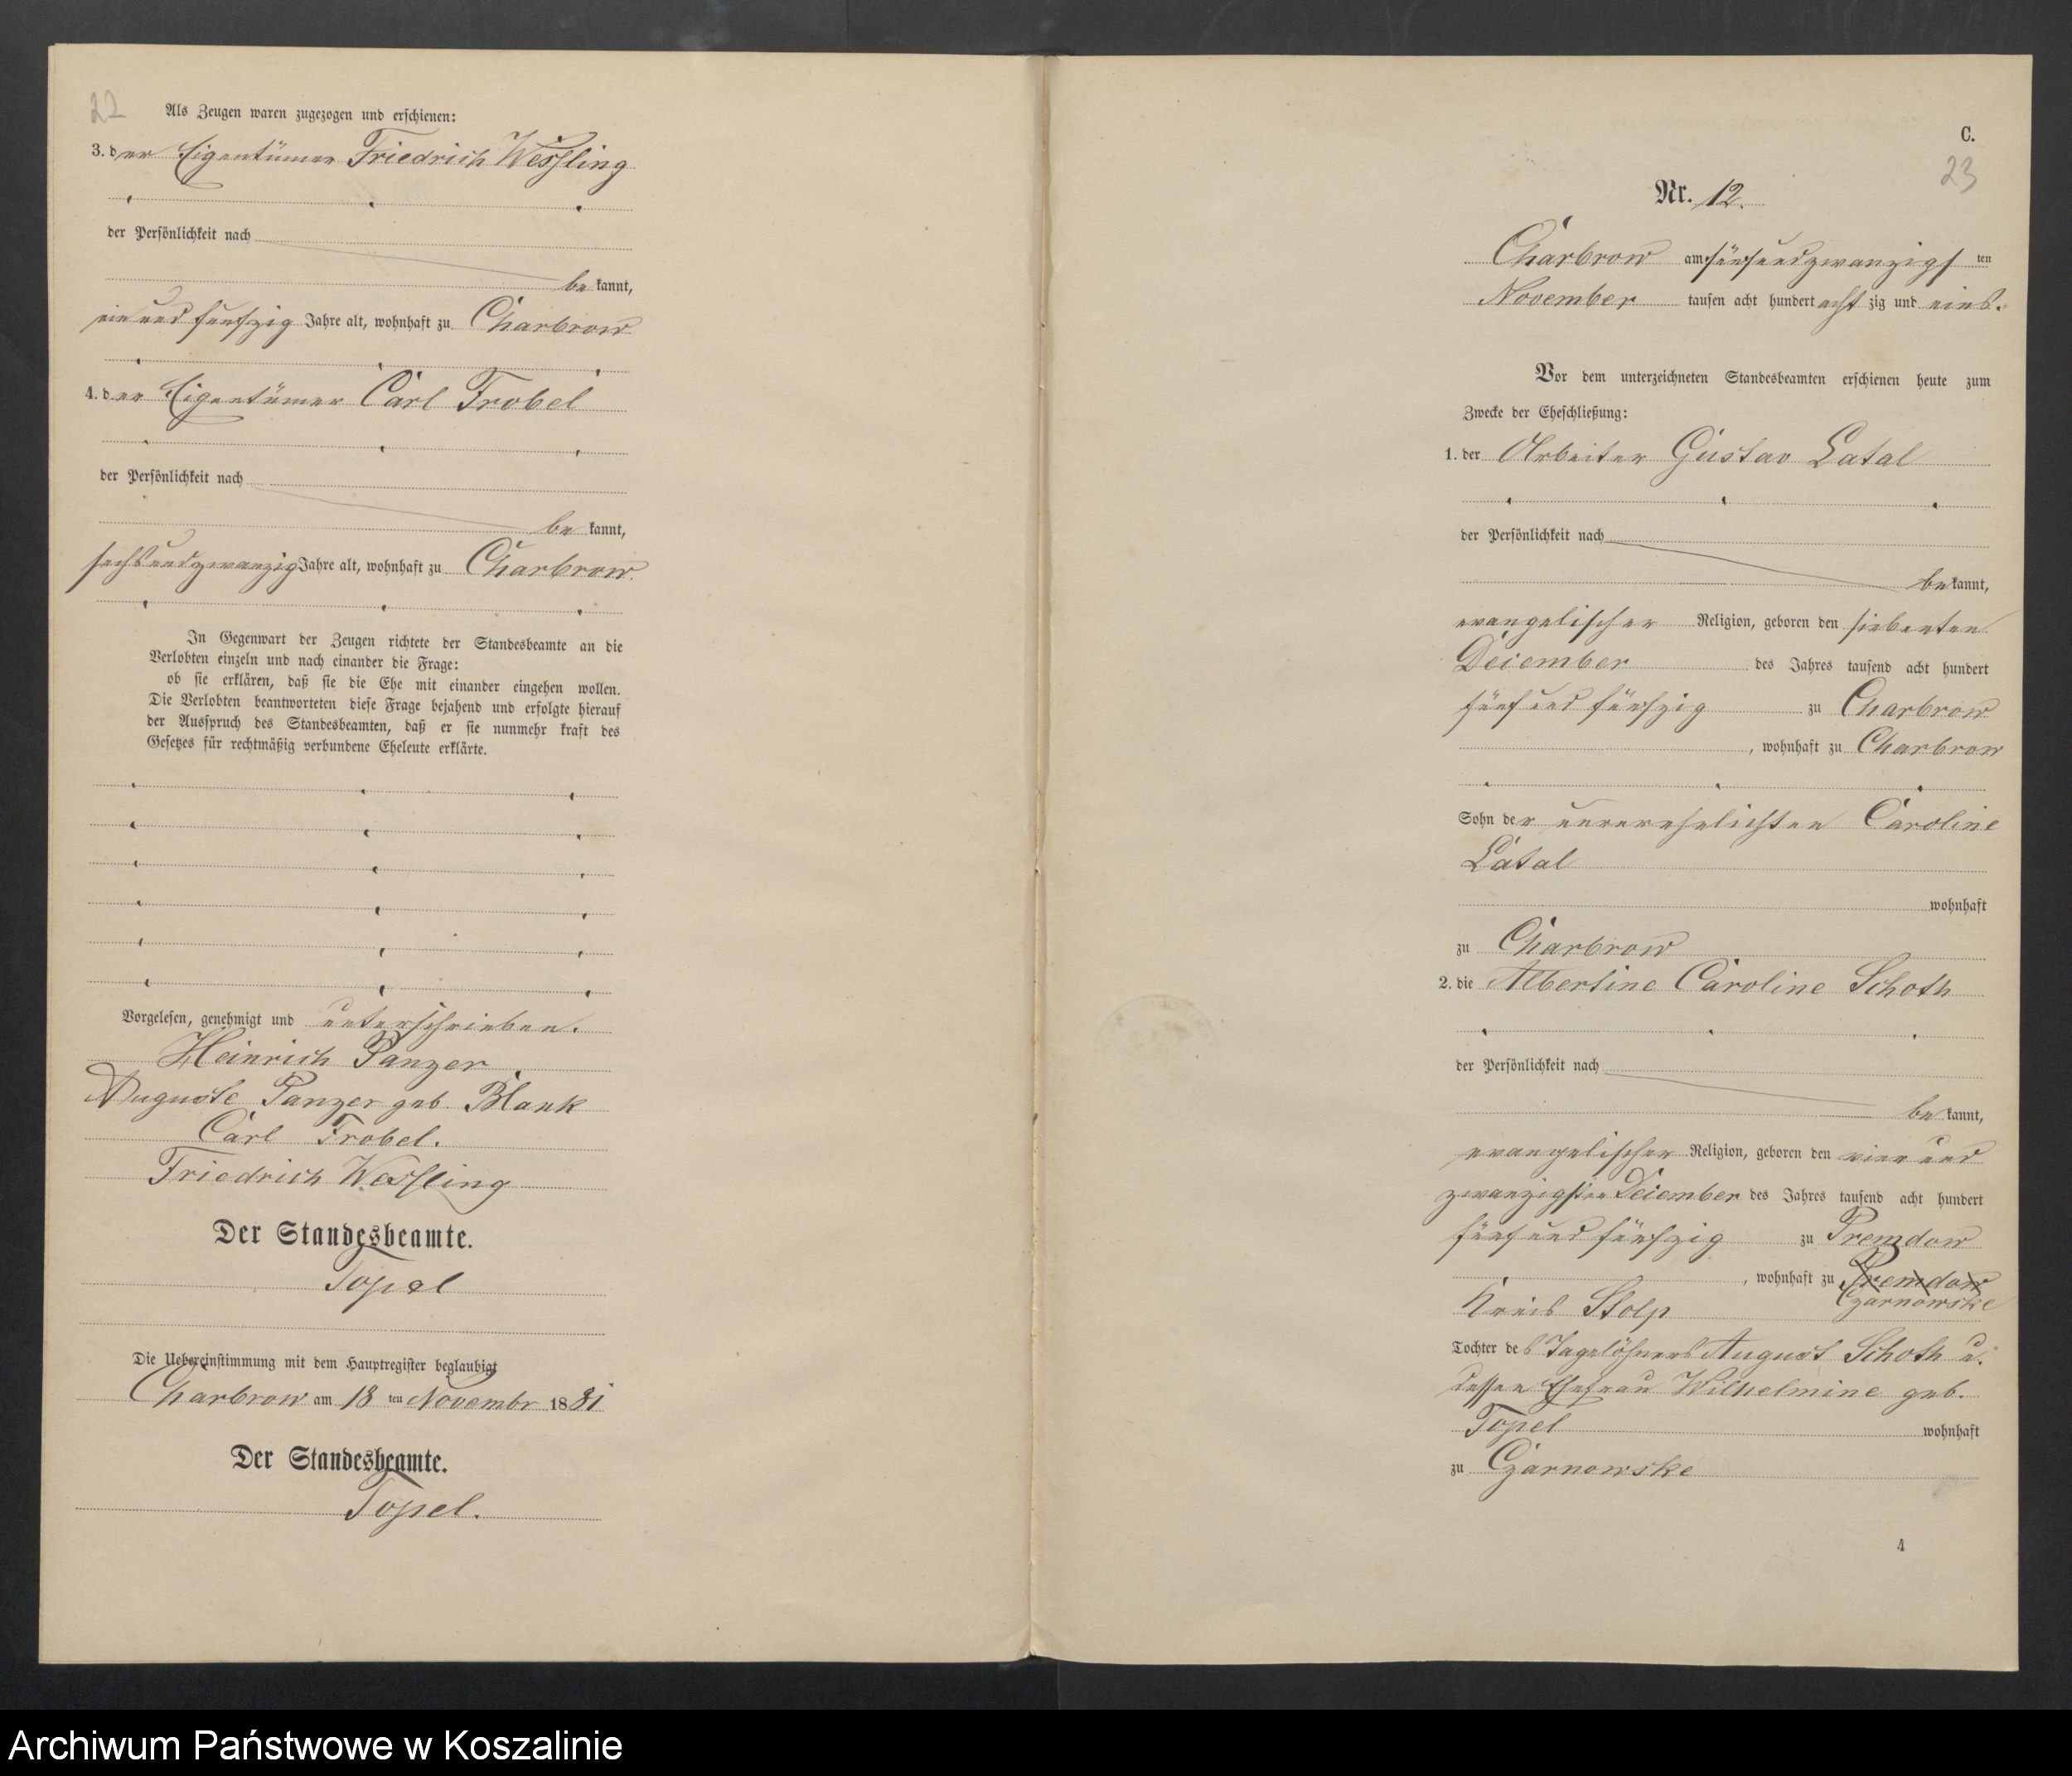 22
Als Zeugen waren zugezogen und erschienen:
3. der Eigentümer Friedrich Wessling
der Persönlichkeit nach
bekannt,
ein und fünfzig Jahre alt, wohnhaft zu Charbrow
4. der Eigentümer Carl Frobel
der Persönlichkeit nach
bekannt,
sechsundzwanzig Jahre alt, wohnhaft zu Charbrow.
In Gegenwart der Zeugen richtete der Standesbeamte an die
Verlobten einzeln und nach einander die Frage:
ob sie erklären, daß sie die Ehe mit einander eingehen wollen.
Die Verlobten beantworteten diese Frage bejahend und erfolgte hierauf
der Ausspruch des Standesbeamten, daß er sie nunmehr kraft des
Gesetzes für rechtmäßig verbundene Eheleute erklärte.
Vorgelesen, genehmigt und unterschrieben.
Heinrich Panzer
Auguste Panzer geb. Blank
Carl Frobel.
Friedrich Wessling
Der Standesbeamte.
Topel
Die Uebereinstimmung mit dem Hauptregister beglaubigt
Charbrow am 18 ten Novembr 1881
Der Standesbeamte.
Topel.
C.
23
Nr. 12.
Charbrow am fünfundzwanzigsten
November tausen acht hundert achtzig und eins.
Vor dem unterzeichneten Standesbeamten erschienen heute zum
Zwecke der Eheschließung:
1. der Arbeiter Gustav Latal
der Persönlichkeit nach
bekannt,
evangelischer Religion, geboren den siebenten
December des Jahres tausend acht hundert
fünf und fünfzig zu Charbrow
, wohnhaft zu Charbrow
Sohn der unverehelichten Caroline
Latal
wohnhaft
zu Charbrow
2. die Albertine Caroline Schoth
der Persönlichkeit nach
bekannt,
evangelischer Religion, geboren den vier und
zwanzigsten December des Jahres tausend acht hundert
fünf und fünfzig zu Premdow
, wohnhaft zu Premdow
Kreis Stolp Czarnowske
Tochter des Tagelöhners August Schoth u.
dessen Ehefrau Wilhelmine geb.
Topel wohnhaft
zu Czarnowske
4
Archiwum Państwowe w Koszalinie